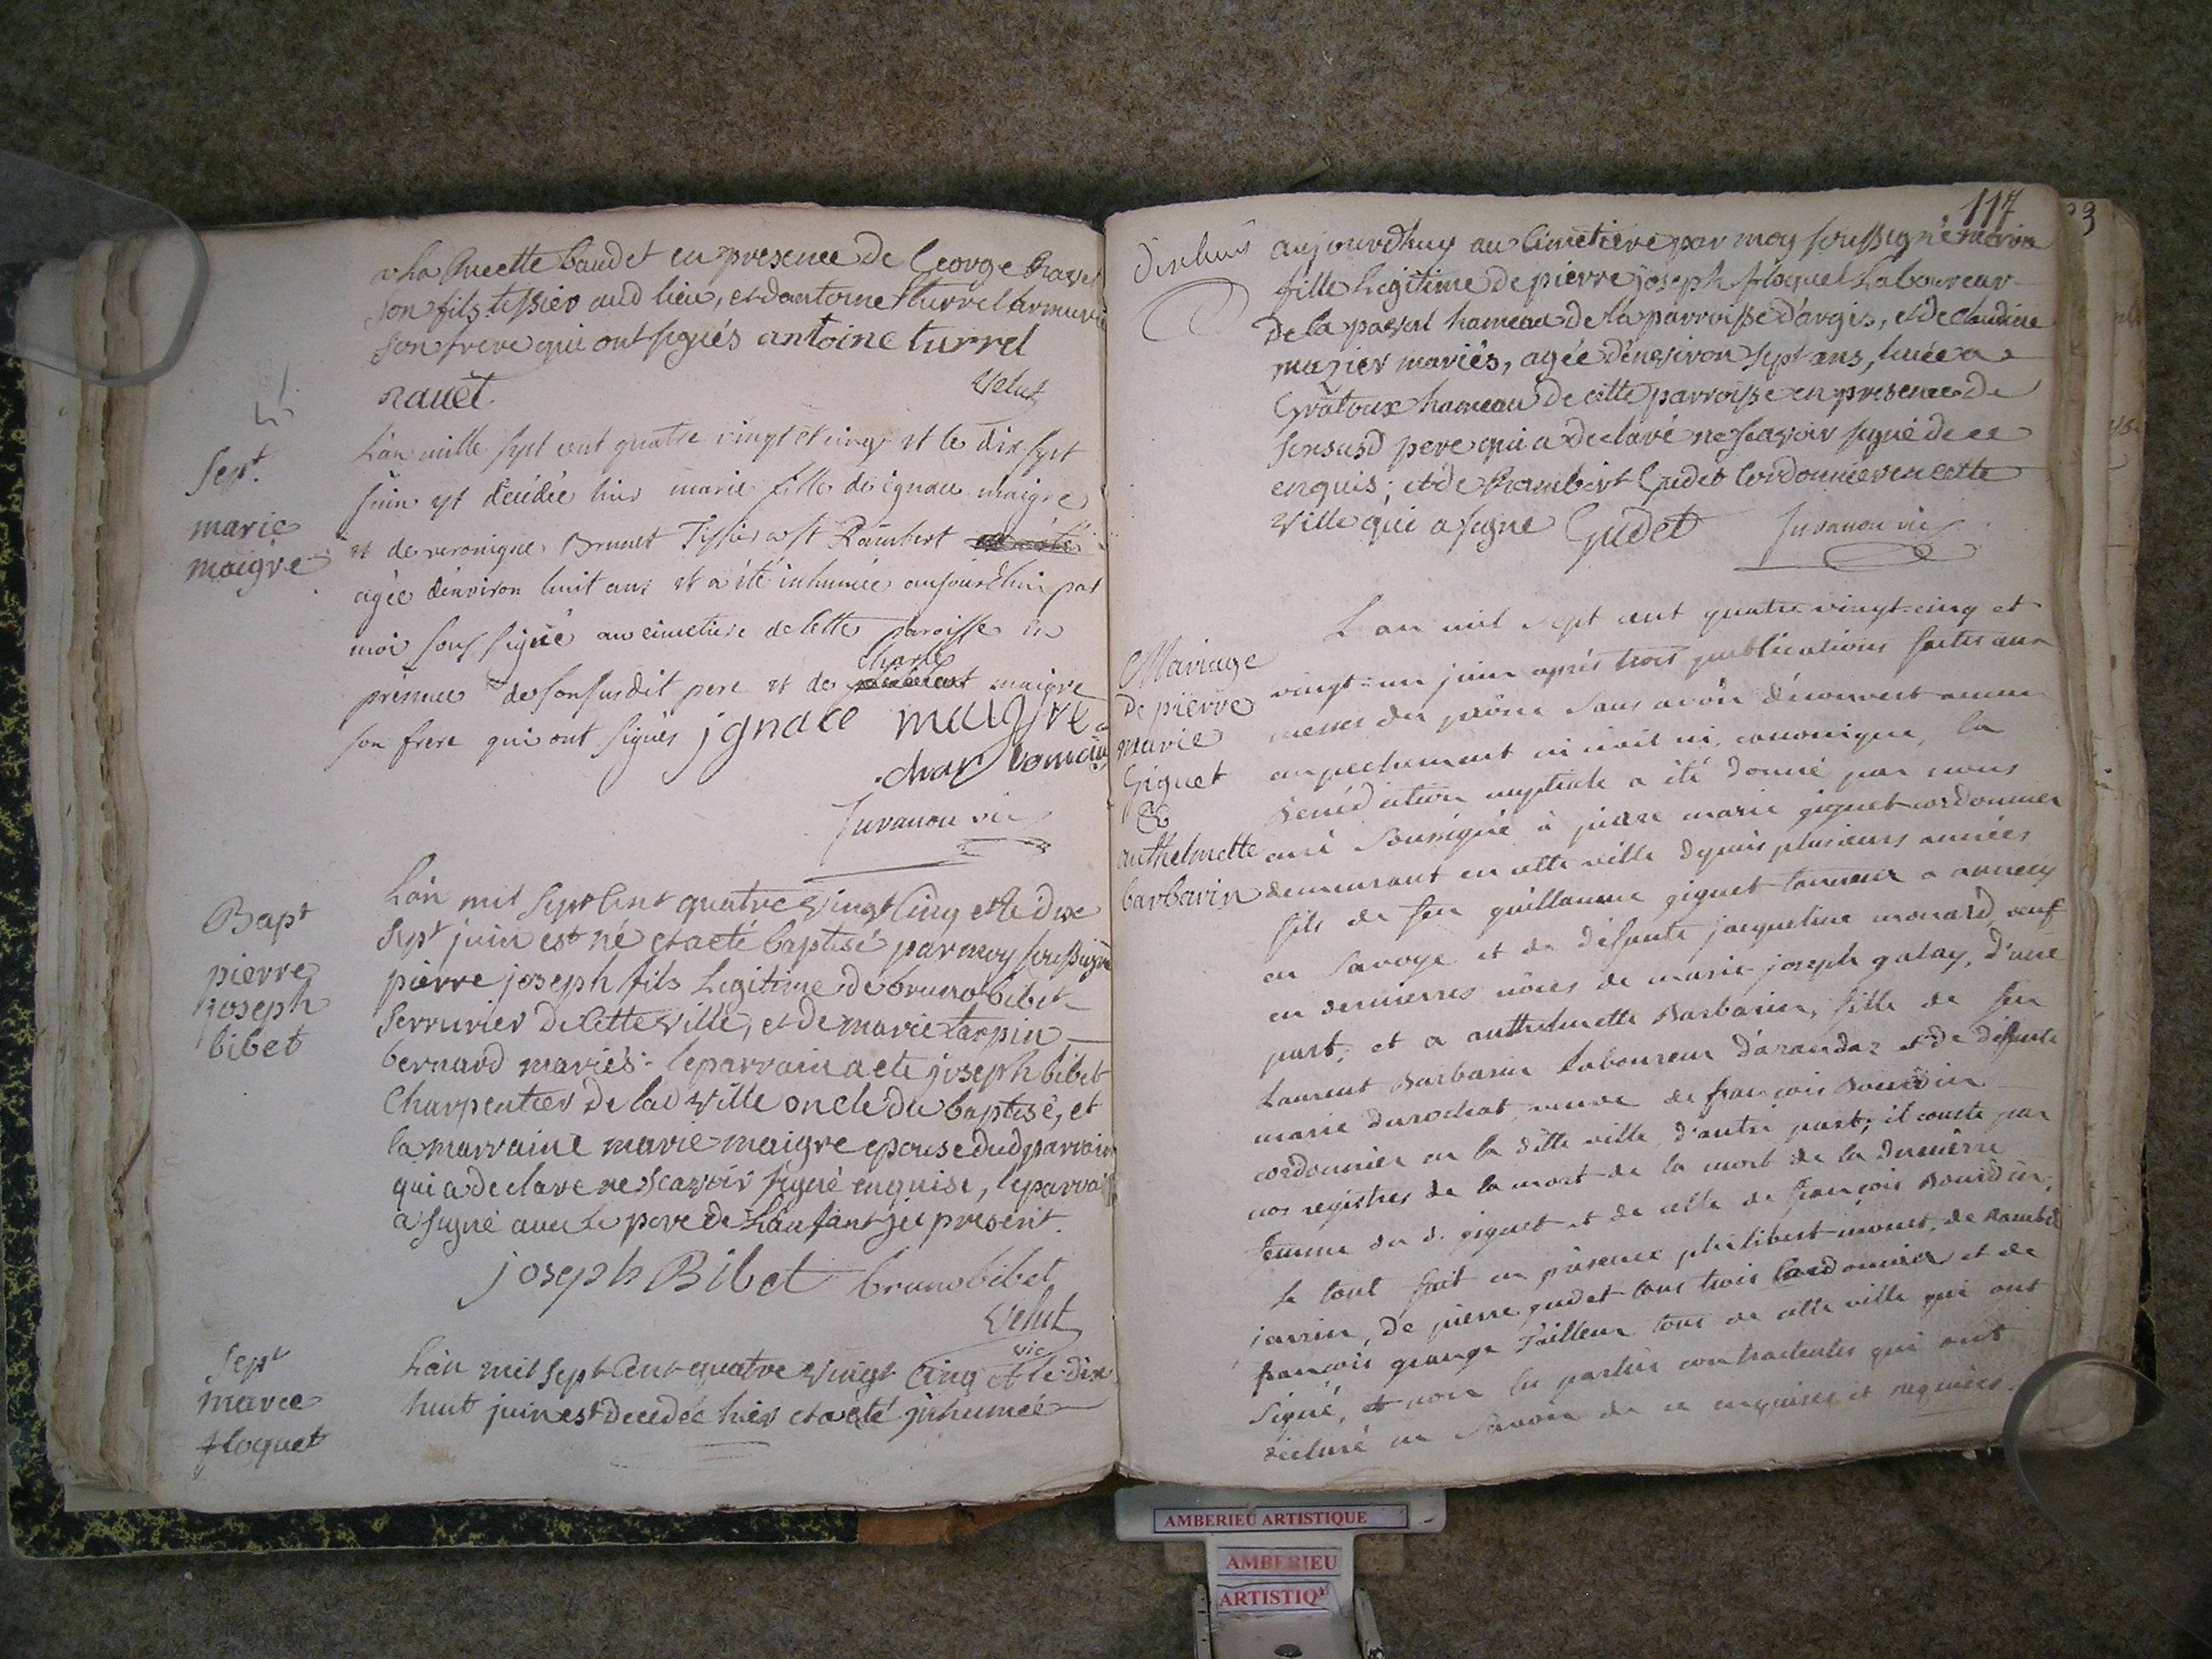 a la Cueette baudet en presence de George Ravet
son fils tessier aud lieu, et d'antoine Turrel armurier
son frere qui ont signés antoine turrel
Rauet
Velut
Sept.
marie
maigre
L'an mille sept cent quatre vingt et cinq et le dix sept
juin est décédée hier marie fille de ignace maigre
et de veronique Brunet Tissier a st Rambert
agée d'environ huit ans et a été inhumée aujourdhui par
moi soussigné au cimetiere de cette paroisse en
présence de son susdit pere et de charle maigre
son frere qui ont signés ignace maigre
Juvanon vic
Bapt
pierre
joseph
bibet
L'an mil sept Cent quatre vingt Cinq et le dix
sept juin est né et a eté baptisé par moy soussigné
pierre joseph fils Legitime de bruno bibet
Serrurier de cette ville, et de marie tarpin
bernard mariés. le parrain a ete joseph bibet
Charpentier de lad ville oncle du baptisé, et
la marraine marie maigre epouse dud parrain
qui a declare ne scavoir signé enquise, le parrain
a signé avec Le pere de L'enfant jci present.
joseph Bibet bruno bibet
Velut
vic
Sept
marie
floquet
L'an mil sept Cent quatre vingt Cinq et le dix
huit juin est decedée hier et a eté jnhumée
117
aujourdhuy au Cimetiere par moy soussigné marie
fille Legitime de pierre joseph floquet Laboureur
De la paroisse hameau de la parroisse d'argis, et de Claudine
mazier mariés, agée d'environ sept ans, tuée a
Gratoux hameau de cette parroisse en presence de
son susd pere qui a declaré ne scavoir signé de ce
enquis; et de Rambert Gudet Cordonnier en cette
ville qui a signe Gudet Juvanon vic
Mariage
De pierre
marie
Giguet
&
anthelmette
barbarin
L'an mil sept cent quatre vingt-cinq et
vingt-un juin après trois publications faites aux
messes du prône sans avoir découvert aucun
empechement ni civil ni canonique, la
bénédiction nuptiale a été donné par nous
curé soussigné à pierre marie giguet cordonnier
demeurant en cette ville depuis plusieurs années
fils de feu guillaume giguet tanneur a annecy
en Savoye et de défunte jacqueline monard, veuf
en dernieres nôces de marie joseph galay, d'une
part; et a anthelmette Barbarin, fille de feu
Laurent Barbarin laboureur d'arandaz et de défunte
marie durochat, veuve de françois Bourdin
cordonnier en la ditte ville d'autre part; il conste par
nos registres de la mort de la mort de la derniere
femme du d. giguet et de celle de françois Bourdin,
le tout fait en présence philibert monet, de Rambert
jarrin, de pierre gudet tous trois Cordonnier et de
francois grange Tailleur tous de cette ville qui ont
signé, et non les parties contractantes qui ont
déclaré ne savoir de ce enquises et requises.
AMBERIEU ARTISTIQUE
AMBERIEU
ARTISTIQ